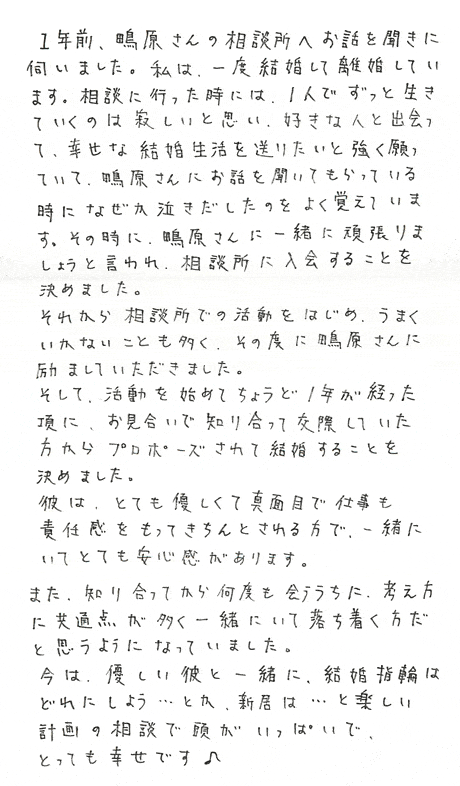 1年前、鴨原さんの相談所へお話を聞きに
伺いました。私は、一度結婚して離婚してい
ます。相談に行った時には、1人でずっと生き
ていくのは寂しいと思い、好きな人と出会っ
て、幸せな結婚生活を送りたいと強く願っ
ていて、鴨原さんにお話を聞いてもらっている
時になぜか泣きだしたのをよく覚えていま
す。その時に、鴨原さんに一緒に頑張りま
しょうと言われ、相談所に入会することを
決めました。
それから相談所での活動をはじめ、うまく
いかないことも多く、その度に鴨原さんに
励ましていただきました。
そして、活動を始めてちょうど1年が経った
頃に、お見合いで知り合って交際していた
方からプロポーズされて結婚することを
決めました。
彼は、とても優しくて真面目で仕事も
責任感をもってきちんとされる方で、一緒に
いてとても安心感があります。
また、知り合ってから何度も会ううちに、考え方
に共通点が多く一緒にいて落ち着く方だ
と思うようになっていました。
今は、優しい彼と一緒に、結婚指輪は
どれにしよう…とか、新居は…と楽しい
計画の相談で頭がいっぱいで、
とっても幸せです♪